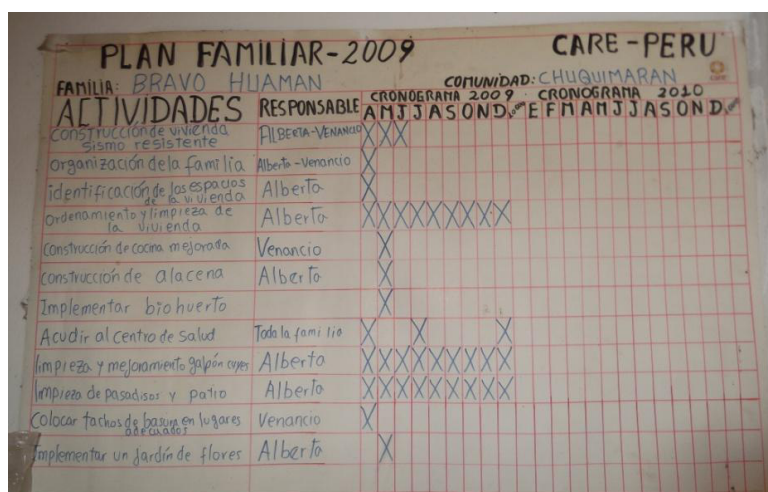 PLAN FAMILIAR-2009 CARE-PERU
FAMILIA: BRAVO HUAMAN COMUNIDAD: CHUQUIMARAN
ACTIVIDADES RESPONSABLE CRONOGRAMA 2009 CRONOGRAMA 2010
A M J J A S O N D E F M A M J J A S O N D
Construcción de vivienda
sismo resistente ALBERTA-VENANCIO X X X
Organización de la familia Alberta-Venancio X
identificación de los espacios
de la vivienda Alberta X
Ordenamiento y limpieza de
la vivienda Alberta X X X X X X X X X
Construcción de cocina mejorada Venancio X
Construcción de alacena Alberta X
Implementar biohuerto X
Acudir al centro de Salud Toda la familia X X X
limpieza y mejoramiento galpón cuyes Alberta X X X X X X X X X
limpieza de pasadisos y patio Alberta X X X X X X X X X
Colocar tachos de basura en lugares
adecuados Venancio X
Implementar un Jardín de flores Alberta X